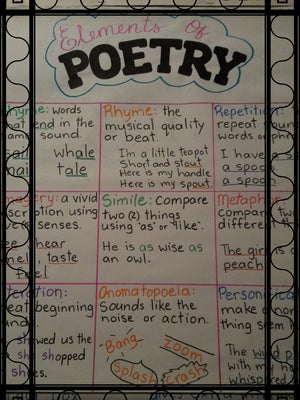 Elements Of
POETRY
hyme: words
at end in the
ame sound.
ail whale
nail tale
Rhyme: the
musical quality
or beat.
I'm a little teapot
short and stout.
Here is my handle
Here is my spout.
Repetition:
repeat soun
words or phr
I have a s
a spoon
a spoon
agery: a vivid
scription using
ve senses.
ee hear
mell, taste
feel
Simile: Compare
two (2) things
using "as" or "like".
He is as wise as
an owl.
Metaphor
compare tw
different th
The girl is
peach
teration:
eat beginning
unds.
showed us the
she shopped
shoes.
Onomatopoeia:
Sounds like the
noise or action.
Bang
Zoom
Splash
Crash
Personific
make a non
thing seem
The wind p
with my h
whispered